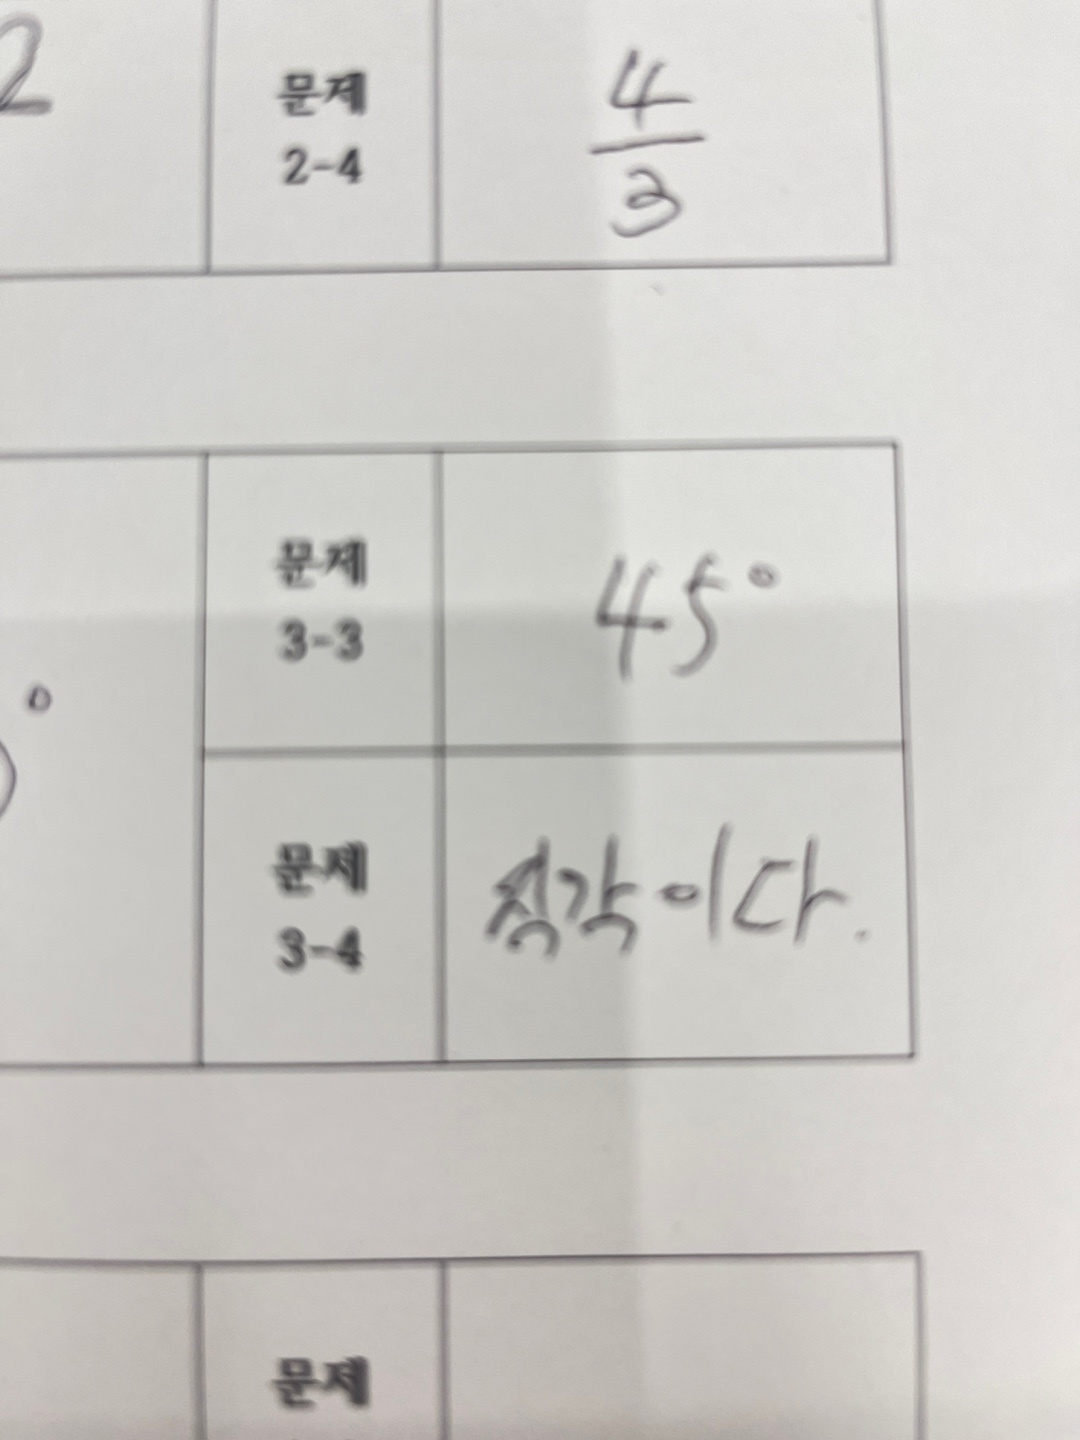 2
문제
2-4
4
3
문제
3-3
45°
°
문제
3-4
직각이다.
문제